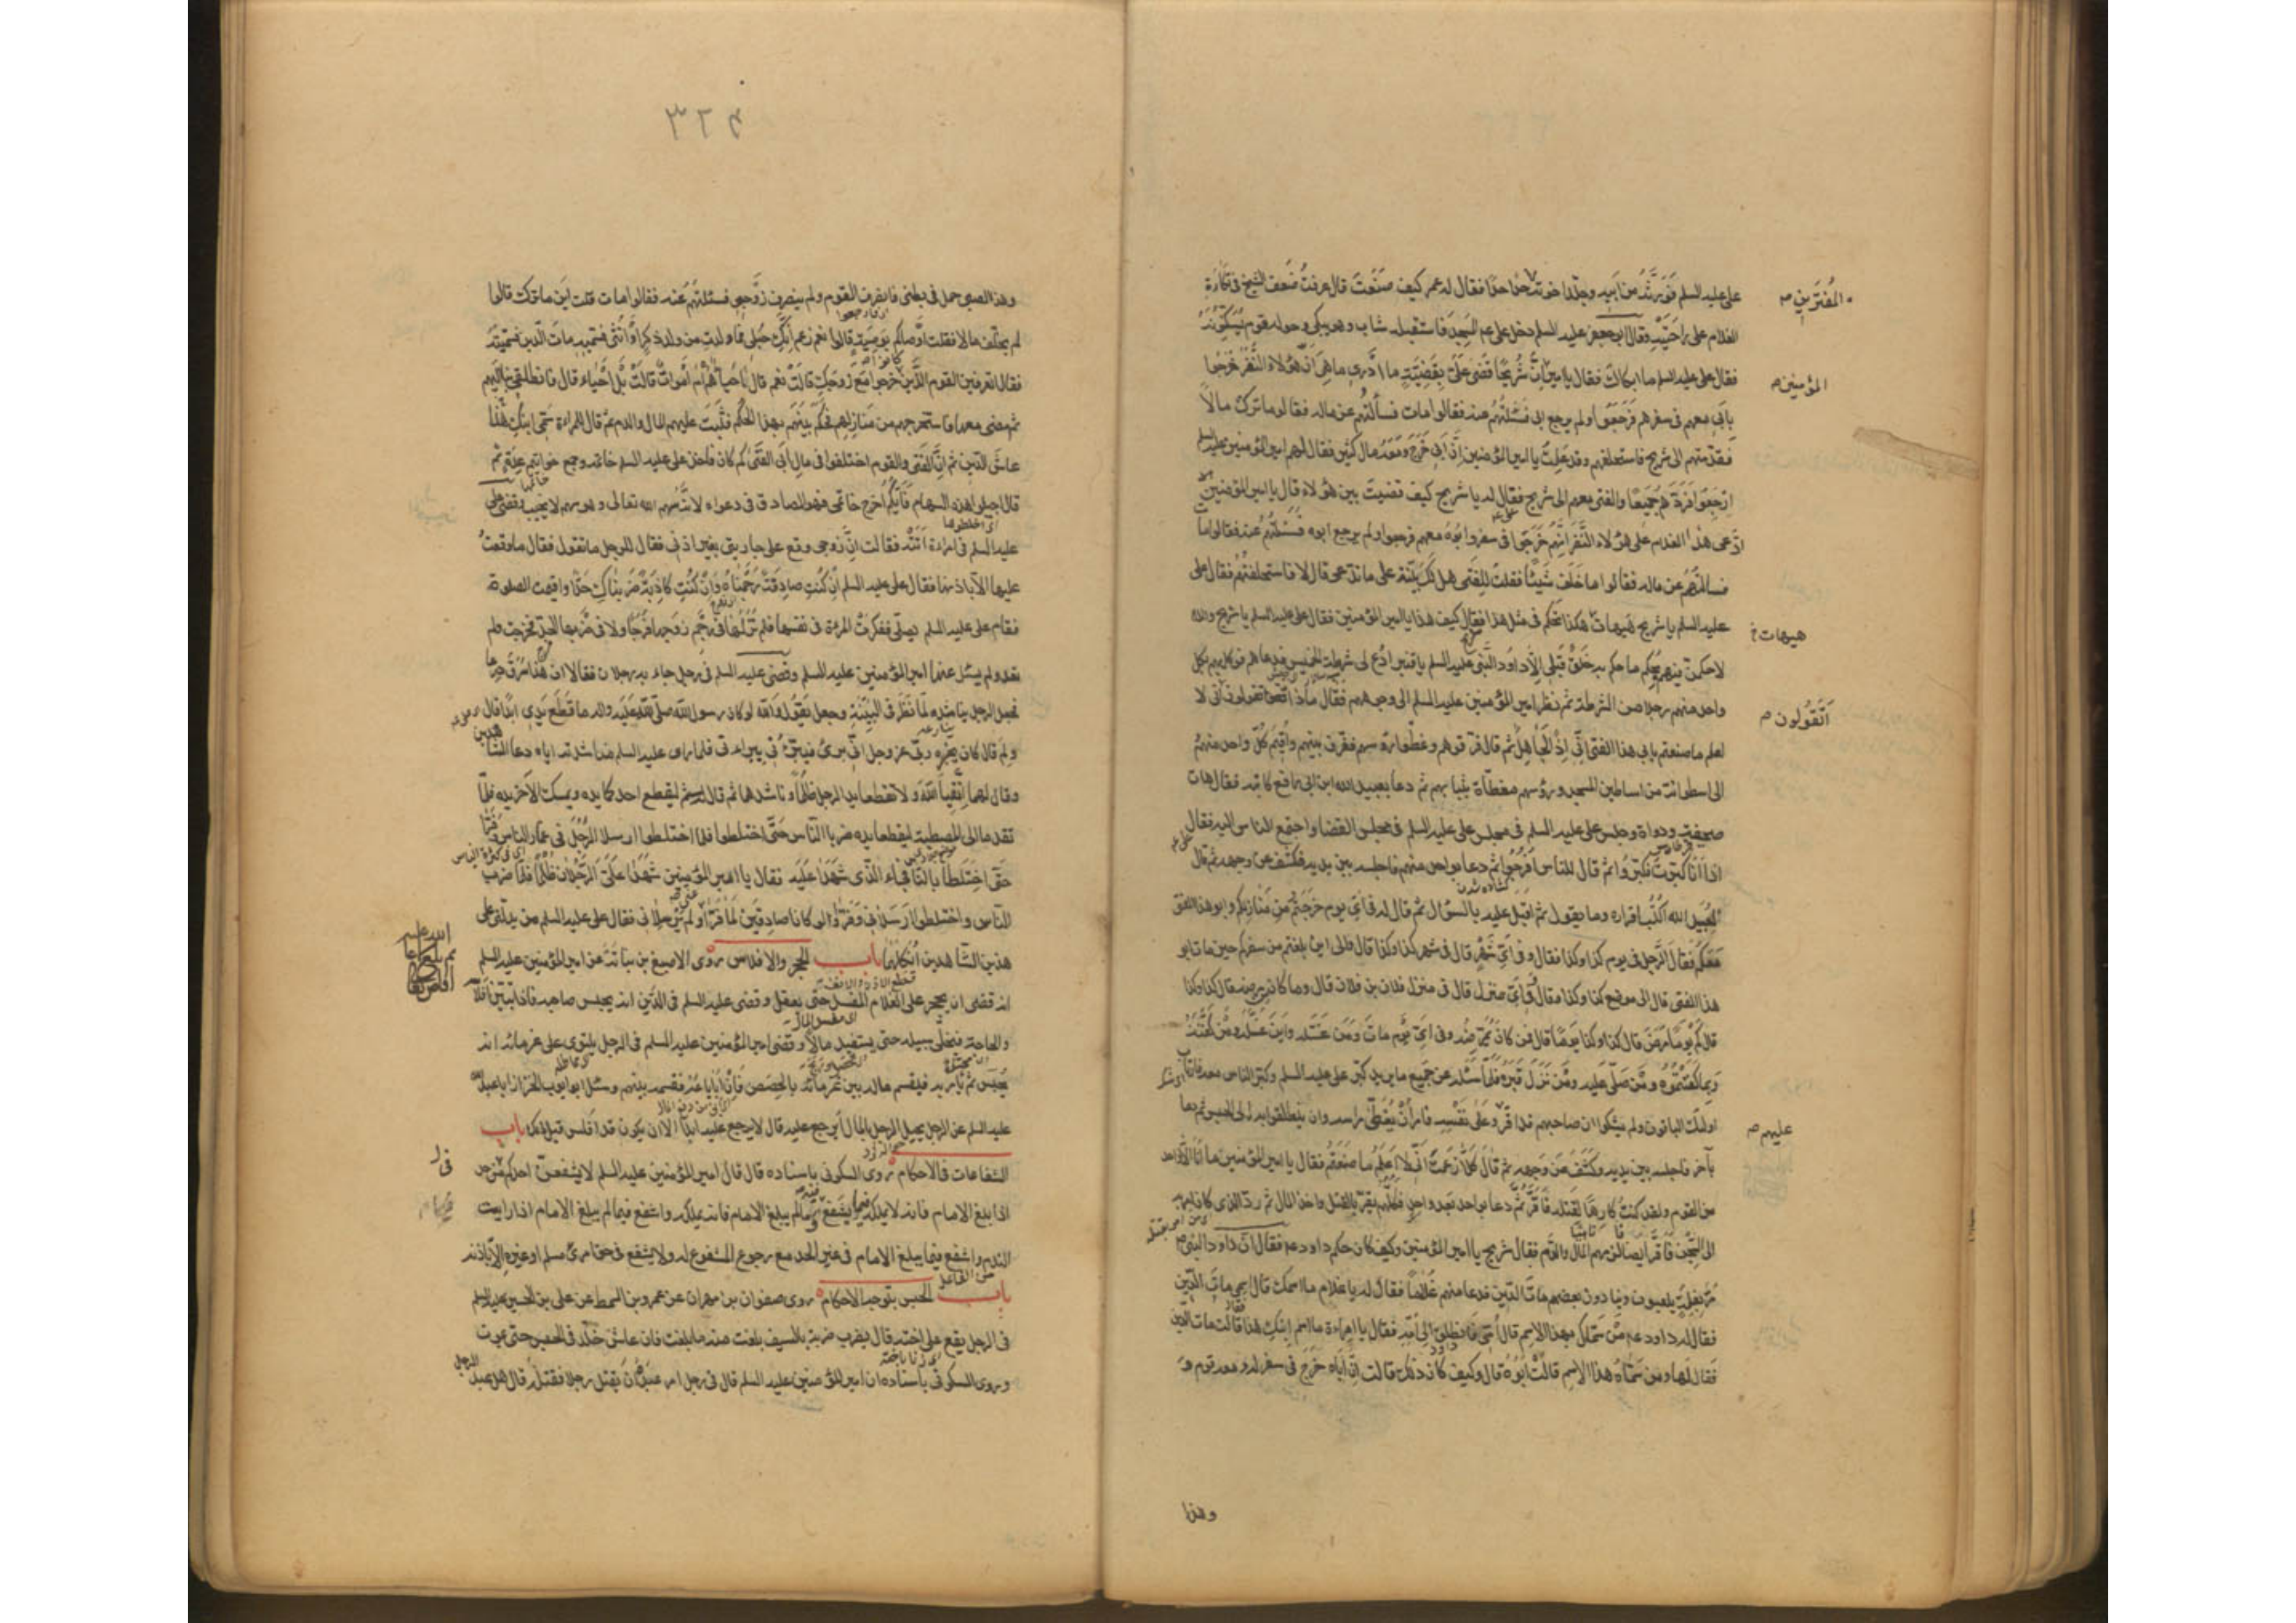 على عليه السلم فورثه من ابيه وجلدا خوته حدا حدا فقال له عمر كيف صنعت قال عرفت ضعف الشيخ في تكاءة
المفترين
الغلام على راحتيه وقال ابو جعفر عليه السلم دخل على عم المسجد فاستقبله شاب وهو يبكي وحوله قوم يسكتونه
فقال على عليه السلم ما ابكاك فقال يا امير ان شريحا قضى على بقضية ما ادري ما هي ان هؤلاء النفر خرجوا
المؤمنين
بابي معهم في سفرهم فرجعوا ولم يرجع ابي فسئلتهم عنه فقالوا مات فسألتهم عن ماله فقالوا ما ترك مالا
فقدمتهم الى شريح فاستحلفهم وقد علمت يا امير المؤمنين ان ابي خرج ومعه مال كثير فقال لهم امير المؤمنين عليه السلم
ارجعوا فردهم جميعا والفتى معهم الى شريح فقال له يا شريح كيف قضيت بين هؤلاء قال يا امير المؤمنين
ادعى هذا الغلام على هؤلاء النفر انهم خرجوا في سفر وابوه معهم فرجعوا ولم يرجع ابوه فسئلتهم عنه فقالوا مات
فسألتهم عن ماله فقالوا ما خلف شيئا فقلت للفتى هل لك بينة على ما تدعى قال لا فاستحلفتهم فقال على
عليه السلم يا شريح هيهات هكذا تحكم في مثل هذا فقال كيف هذا يا امير المؤمنين فقال على عليه السلم يا شريح والله
هيهات
لاحكمن فيهم بحكم ما حكم به خلق قبلي الا داود النبي عليه السلم يا قنبر ادع لى شرطة الخميس فدعاهم فوكل بهم بكل
واحد منهم رجلا من الشرطة ثم نظر امير المؤمنين عليه السلم الى وجوههم فقال ماذا تقولون اني لا
اتقولون
اعلم ما صنعتم بابي هذا الفتى اني اذ الجاهل ثم قال فرقوهم وغطوا رؤسهم ففرق بينهم واقيم كل واحد منهم
الى اسطوانة من اساطين المسجد ورؤسهم مغطاة بثيابهم ثم دعا بعبيد الله ابن ابي رافع كاتبه فقال هات
صحيفة ودواة وجلس على عليه السلم في مجلس القضا واجتمع الناس اليه فقال
اذا انا كبرت فكبروا ثم قال للناس افرجوا ثم دعا بواحد منهم فاجلسه بين يديه فكشف عن وجهه ثم قال
لعبيد الله اكتب اقراره وما يقول ثم اقبل عليه بالسؤال ثم قال له في اي يوم خرجتم من منازلكم وابو هذا الفتى
معكم فقال الرجل في يوم كذا وكذا فقال وفي اي شهر قال في شهر كذا وكذا قال فالى اين بلغتم من سفركم حين مات ابو
هذا الفتى قال الى موضع كذا وكذا فقال في اي منزل قال في منزل فلان بن فلان قال وما كان مرضه قال كذا وكذا
قال كم يوما مرض قال كذا وكذا يوما قال فمن كان يمرضه وفي اي يوم مات ومن غسله واين غسله ومن كفنه
وبما كفنتموه ومن صلى عليه ومن نزل قبره فلما سئله عن جميع ما يريد كبر على عليه السلم وكبر الناس معه فارتاب
اولئك الباقون ولم يشكوا ان صاحبهم قد اقر وعلى نفسه فامر ان يغطى راسه وان ينطلقوا به الى الحبس ثم دعا
عليهم
بآخر فاجلسه بين يديه وكشف عن وجهه ثم قال كلا زعمت اني لا اعلم ما صنعتم فقال يا امير المؤمنين ما انا الا واحد
من القوم ولقد كنت كارها لقتله فاقر ثم دعا بواحد بعد واحد فكلهم يقر بالقتل واخذ المال ثم رد الذي كان امر به
الى السجن فاقر ايضا فالزمهم المال والدم فقال شريح يا امير المؤمنين وكيف كان حكم داود عم فقال ان داود النبي
مر بغلمة يلعبون وينادون بعضهم مات الدين فدعا منهم غلاما فقال له يا غلام ما اسمك قال اسمي مات الدين
فقال له داود عم من سماك بهذا الاسم قال امي فانطلق الى امه فقال يا امراءة ما اسم ابنك هذا قالت مات الدين
فقال لها ومن سماه هذا الاسم قالت ابوه قال وكيف كان ذلك قالت ان اباه خرج في سفر له ومعه قوم و
وهذا
٣٢۴
وهذا الصبي حمل في بطني فانصرف القوم ولم ينصرف زوجي فسئلتهم عنه فقالوا مات قلت اين ما ترك قالوا
لم يخلف مالا فقلت اوصاكم بوصية قالوا نعم زعم انك حبلى فما ولدت من ولد ذكر او انثى فسميه مات الدين فسميته
فقال اتعرفين القوم الذين خرجوا مع زوجك قالت نعم قال فاحياء هم ام اموات قالت بل احياء قال فانطلقي بنا اليهم
ثم مضى معها فاستخرجهم من منازلهم فحكم بينهم بهذا الحكم فثبت عليهم المال والدم ثم قال للمراءة سمى ابنك هذا
عاش الدين ثم ان الفتى والقوم اختلفوا في مال ابي الفتى كم كان فاخذ على عليه السلم خاتمه وجمع خواتيم عدة ثم
قال اجيلوا هذه السهام فايكم اخرج خاتمي فهو الصادق في دعواه لانه سهم الله تعالى وهو سهم لا يخيب وقضى على
عليه السلم في امراءة اتته فقالت ان زوجي وقع على جاريتي بغير اذني فقال للرجل ما تقول فقال ما وقعت
عليها الا باذنها فقال على عليه السلم ان كنت صادقة رجمناه وان كنت كاذبة ضربناك حدا واقيمت الصلوة
فقام على عليه السلم يصلي ففكرت المرءة في نفسها فلم تر لها في رجم زوجها فرجا ولا في ضربها الحد فخرجت ولم
تعد ولم يسئل عنها امير المؤمنين عليه السلم وقضى عليه السلم في رجل جاء به رجلان فقالا ان هذا سرق درعا
فجعل الرجل يناشده لما نظر في البينة وجعل يقول والله لو كان رسول الله صلى الله عليه واله ما قطع يدي ابدا قال
ولم قال كان يخبره ربه عز وجل اني بريء فيبرئني ببراءتي فلما راى عليه السلم مناشدته اياه دعا الشاهدين
وقال لهما اتقيا الله ولا تقطعا يد الرجل ظلما وناشدهما ثم قال ليقطع احدكما يده ويمسك الاخر يده فلما
تقدما الى المصطبة ليقطعا يده ضربا الناس حتى اختلطوا فلما اختلطوا ارسلا الرجل في غمار الناس وفرا
حتى اختلطا بالناس فجاء الذي شهدا عليه فقال يا امير المؤمنين شهد على الرجلان ظلما فلما ضربا
الناس واختلطوا ارسلاني وفرا ولو كانا صادقين لما فرا ولم يرسلاني فقال على عليه السلم من يدلني على
هذين الشاهدين انكلهما باب الحجر والافلاس روى الاصبغ بن نباتة عن امير المؤمنين عليه السلم
انه قضى ان يحجر على الغلام المفسد حتى يعقل وقضى عليه السلم في الدين انه يحبس صاحبه فاذا تبين افلاسه
والحاجة فيخلى سبيله حتى يستفيد مالا وقضى امير المؤمنين عليه السلم في الرجل يلتوي على غرمائه انه
يحبس ثم يامر به فيقسم ماله بين غرمائه بالحصص فان ابا باعه فقسمه بينهم وسئل ابو ايوب الخزاز ابا عبد الله
عليه السلم عن الرجل يحيل الرجل بالمال ايرجع عليه قال لا يرجع عليه ابدا الا ان يكون قد افلس قبل ذلك باب
الشفاعات في الاحكام روى السكوني باسناده قال قال امير المؤمنين عليه السلم لا يشفعن احدكم في حد
اذا بلغ الامام فانه لا يملكه فيما يشفع وما لم يبلغ الامام فانه يملكه واشفع فيما لم يبلغ الامام اذا رايت
الندم واشفع فيما يبلغ الامام في غير الحد مع رجوع المشفوع له ولا يشفع في حق امرئ مسلم او غيره الا باذنه
باب الحبس بتوجه الاحكام روى صفوان بن مهران عن عمرو بن السمط عن على بن الحسين عليه السلم
في الرجل يقع على اخته قال يضرب ضربة بالسيف بلغت منه ما بلغت فان عاش خلد في الحبس حتى يموت
وروى السكوني باسناده ان امير المؤمنين عليه السلم قال في رجل امر عبده ان يقتل رجلا فقتله قال هل عبد الرجل